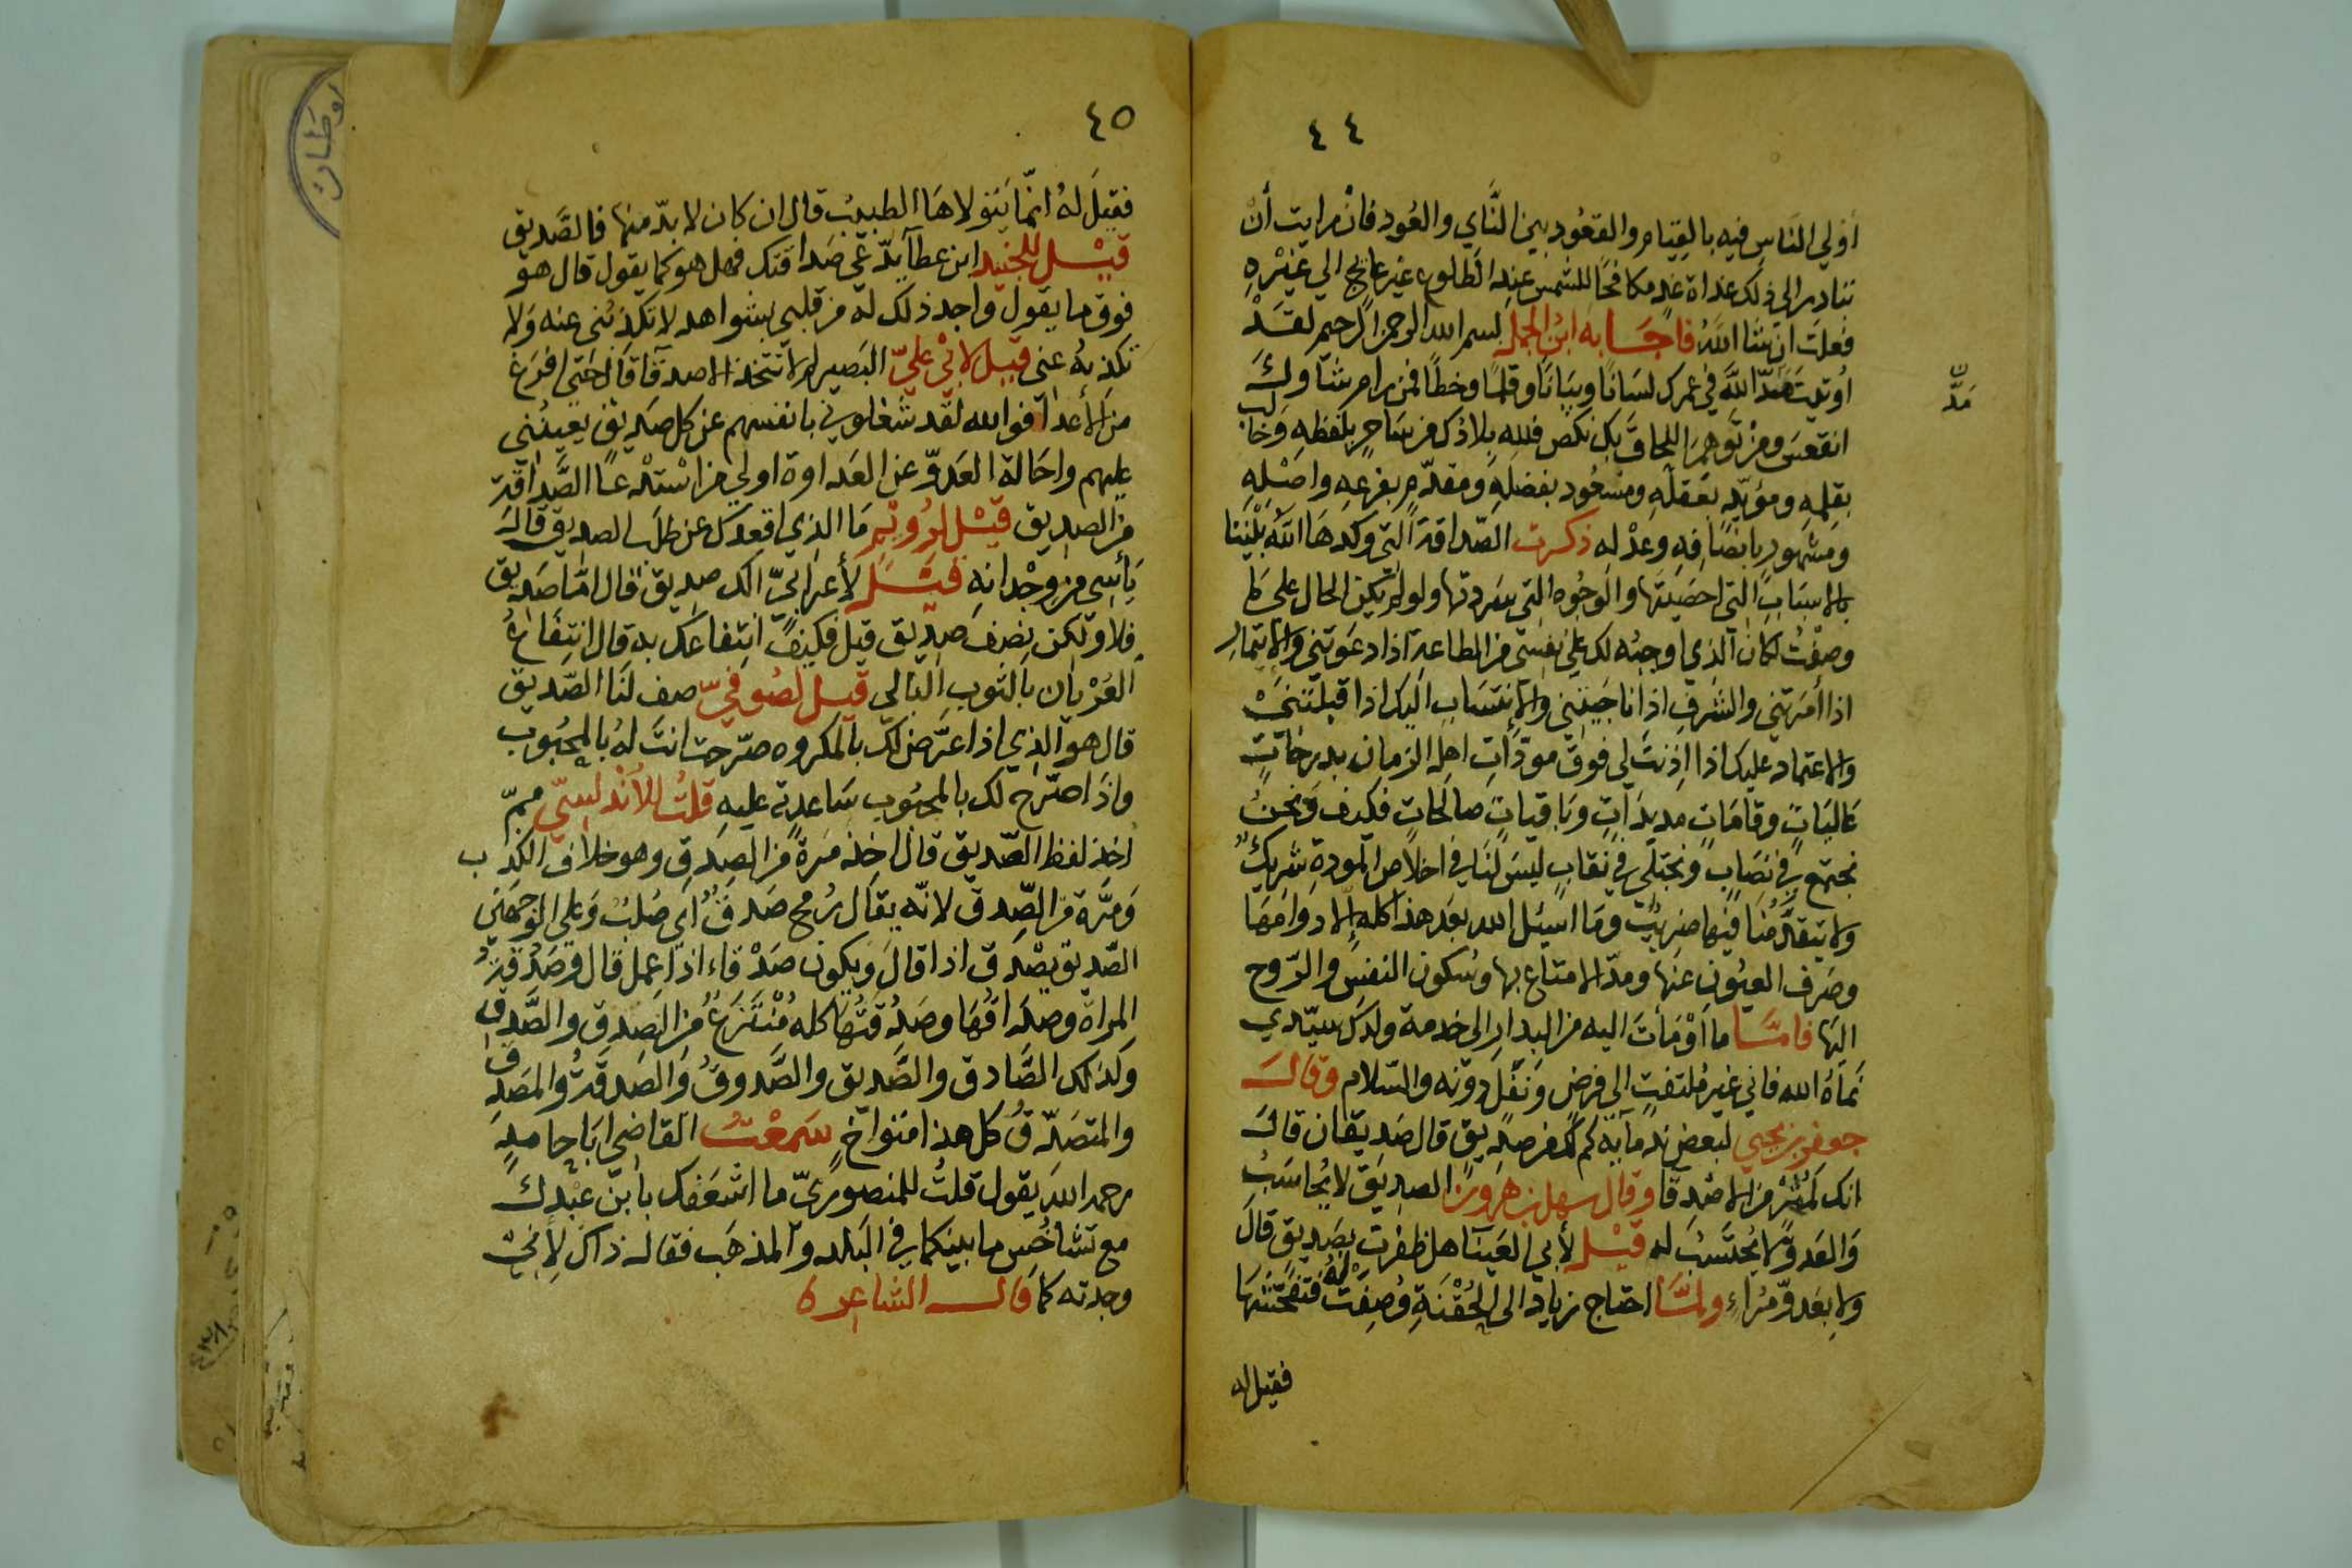 ٤٤
أولي الناس فيه بالقيام والقعود بين الناي والعود فان رايت أن
تبادر الى ذلك غداة غدٍ مكافحًا للشمس عند الطلوع غير عايج الي غيره
فعلت ان شا اللّه فاجابه ابن الجمل بسم الله الرحمن الرحيم لقد
أوتيت مدّ اللّه في عمرك لسانًا وبيانًا وقلمًا وخطًا فمن رام شاوك
مدّ
انقعس ومن توهم اللحاق بك نكص فلله بلادك من ساحرٍ بلفظه وخالب
بقلمه ومؤيّد بعقله ومسعُود بفضله ومقدّم بفرعه واصله
ومشهور بانصافه وعدله ذكرت الصّداقة التي وكدها اللّه بيننا
بالاسباب التي احصيتها والوجوه التي سردتها ولو لم يكن الحال على ما
وصفت لكان الذي اوجبه لك علي نفسي من الطاعة اذا دعوتني والايتمار
اذا أمرتني والشرف اذا ناجيتني والانتساب اليك اذا قبلتني
والاعتماد عليك اذا اذنت لي فوق مودّات اهل الزمان بدرجاتٍ
عاليات وقامات مديدات وباقيات صالحات فكيف ونحن
نجتمع في نصاب ونجتلي في نقاب ليس لنا في اخلاص المودة شريك
ولا يتقدّمنا فيها ضريب وما اسيل الله بعد هذا كله إلا دوامها
وصرف العيون عنها ومدّ الامتاع بها وسكون النفس والروح
اليها فامّا ما أومأت اليه من البدار الى خدمة ولدك سيّدي
نماه الله فاني غير ملتفت الى فرض ونفل دونه والسّلام وقال
جعفر بن يحيي لبعض ندمايه كم لك من صديق قال صديقان قال
انك لمثر من الاصدقا وقال سهل بن هرون الصديق لا يُحاسب
والعدو لا يُحتسب له قيل لأبي العينا هل ظفرت بصديق قال
ولا بعدوّ مراء ولمّا احتاج زياد الى الحُقنة وُصفت له فتفحّشها
فقيل له
٤٥
فقيل له انّما يتولاها الطبيب قال ان كان لا بدّ منها فالصّديق
قيل للجنيد ابن عطا يدّعي صداقتك فهل هو كما يقول قال هو
فوق ما يقول واجد ذلك له من قلبي بشواهد لا تكذبني عنه ولا
تكذبه عني قيل لابي عليّ البصير لم لا تتخذ الاصدقا قال حتى افرغ
من الأعدا فوالله لقد شغلوني بانفسهم عن كل صديق يعينني
عليهم واحالة العدوّ عن العداوة اولي من استدعا الصّداقة
من الصديق قيل لرويم ما الذي اقعدك عن طلب الصديق قال
يأسي من وجدانه قيل لأعرابيّ الك صديق قال امّا صديق
فلا ولكن نصف صديق قيل فكيف انتفاعك به قال انتفاع
العريان بالثوب البالي قيل لصوفيّ صف لنا الصّديق
قال هو الذي اذا عرّض لك بالمكروه صرّحت انت له بالمحبوب
واذا صرّح لك بالمحبوب ساعدته عليه قلت للأندلسيّ ممّ
اخذ لفظ الصّديق قال اخذ مرة من الصدق وهو خلاف الكذب
ومرّة من الصّدق لانّه يقال رمح صدق أي صلب وعلى الوجهين
الصّديق يصدق اذا قال ويكون صدقاء اذا عمل قال وصدقة
المراة وصداقها وصدُقتها كله مُنتزع من الصدق والصّدق
وكذلك الصّادق والصّديق والصّدوق والصدقة والمصدق
والمتصدّق كل هذا متواخٍ سمعت القاضي ابا حامدٍ
رحمه الله يقول قلت للمنصوريّ ما اشغفك بابن عبدك
مع تشاخُص ما بينكما في البلد والمذهب فقال ذاك لأني
وجدته كما قال الشاعر